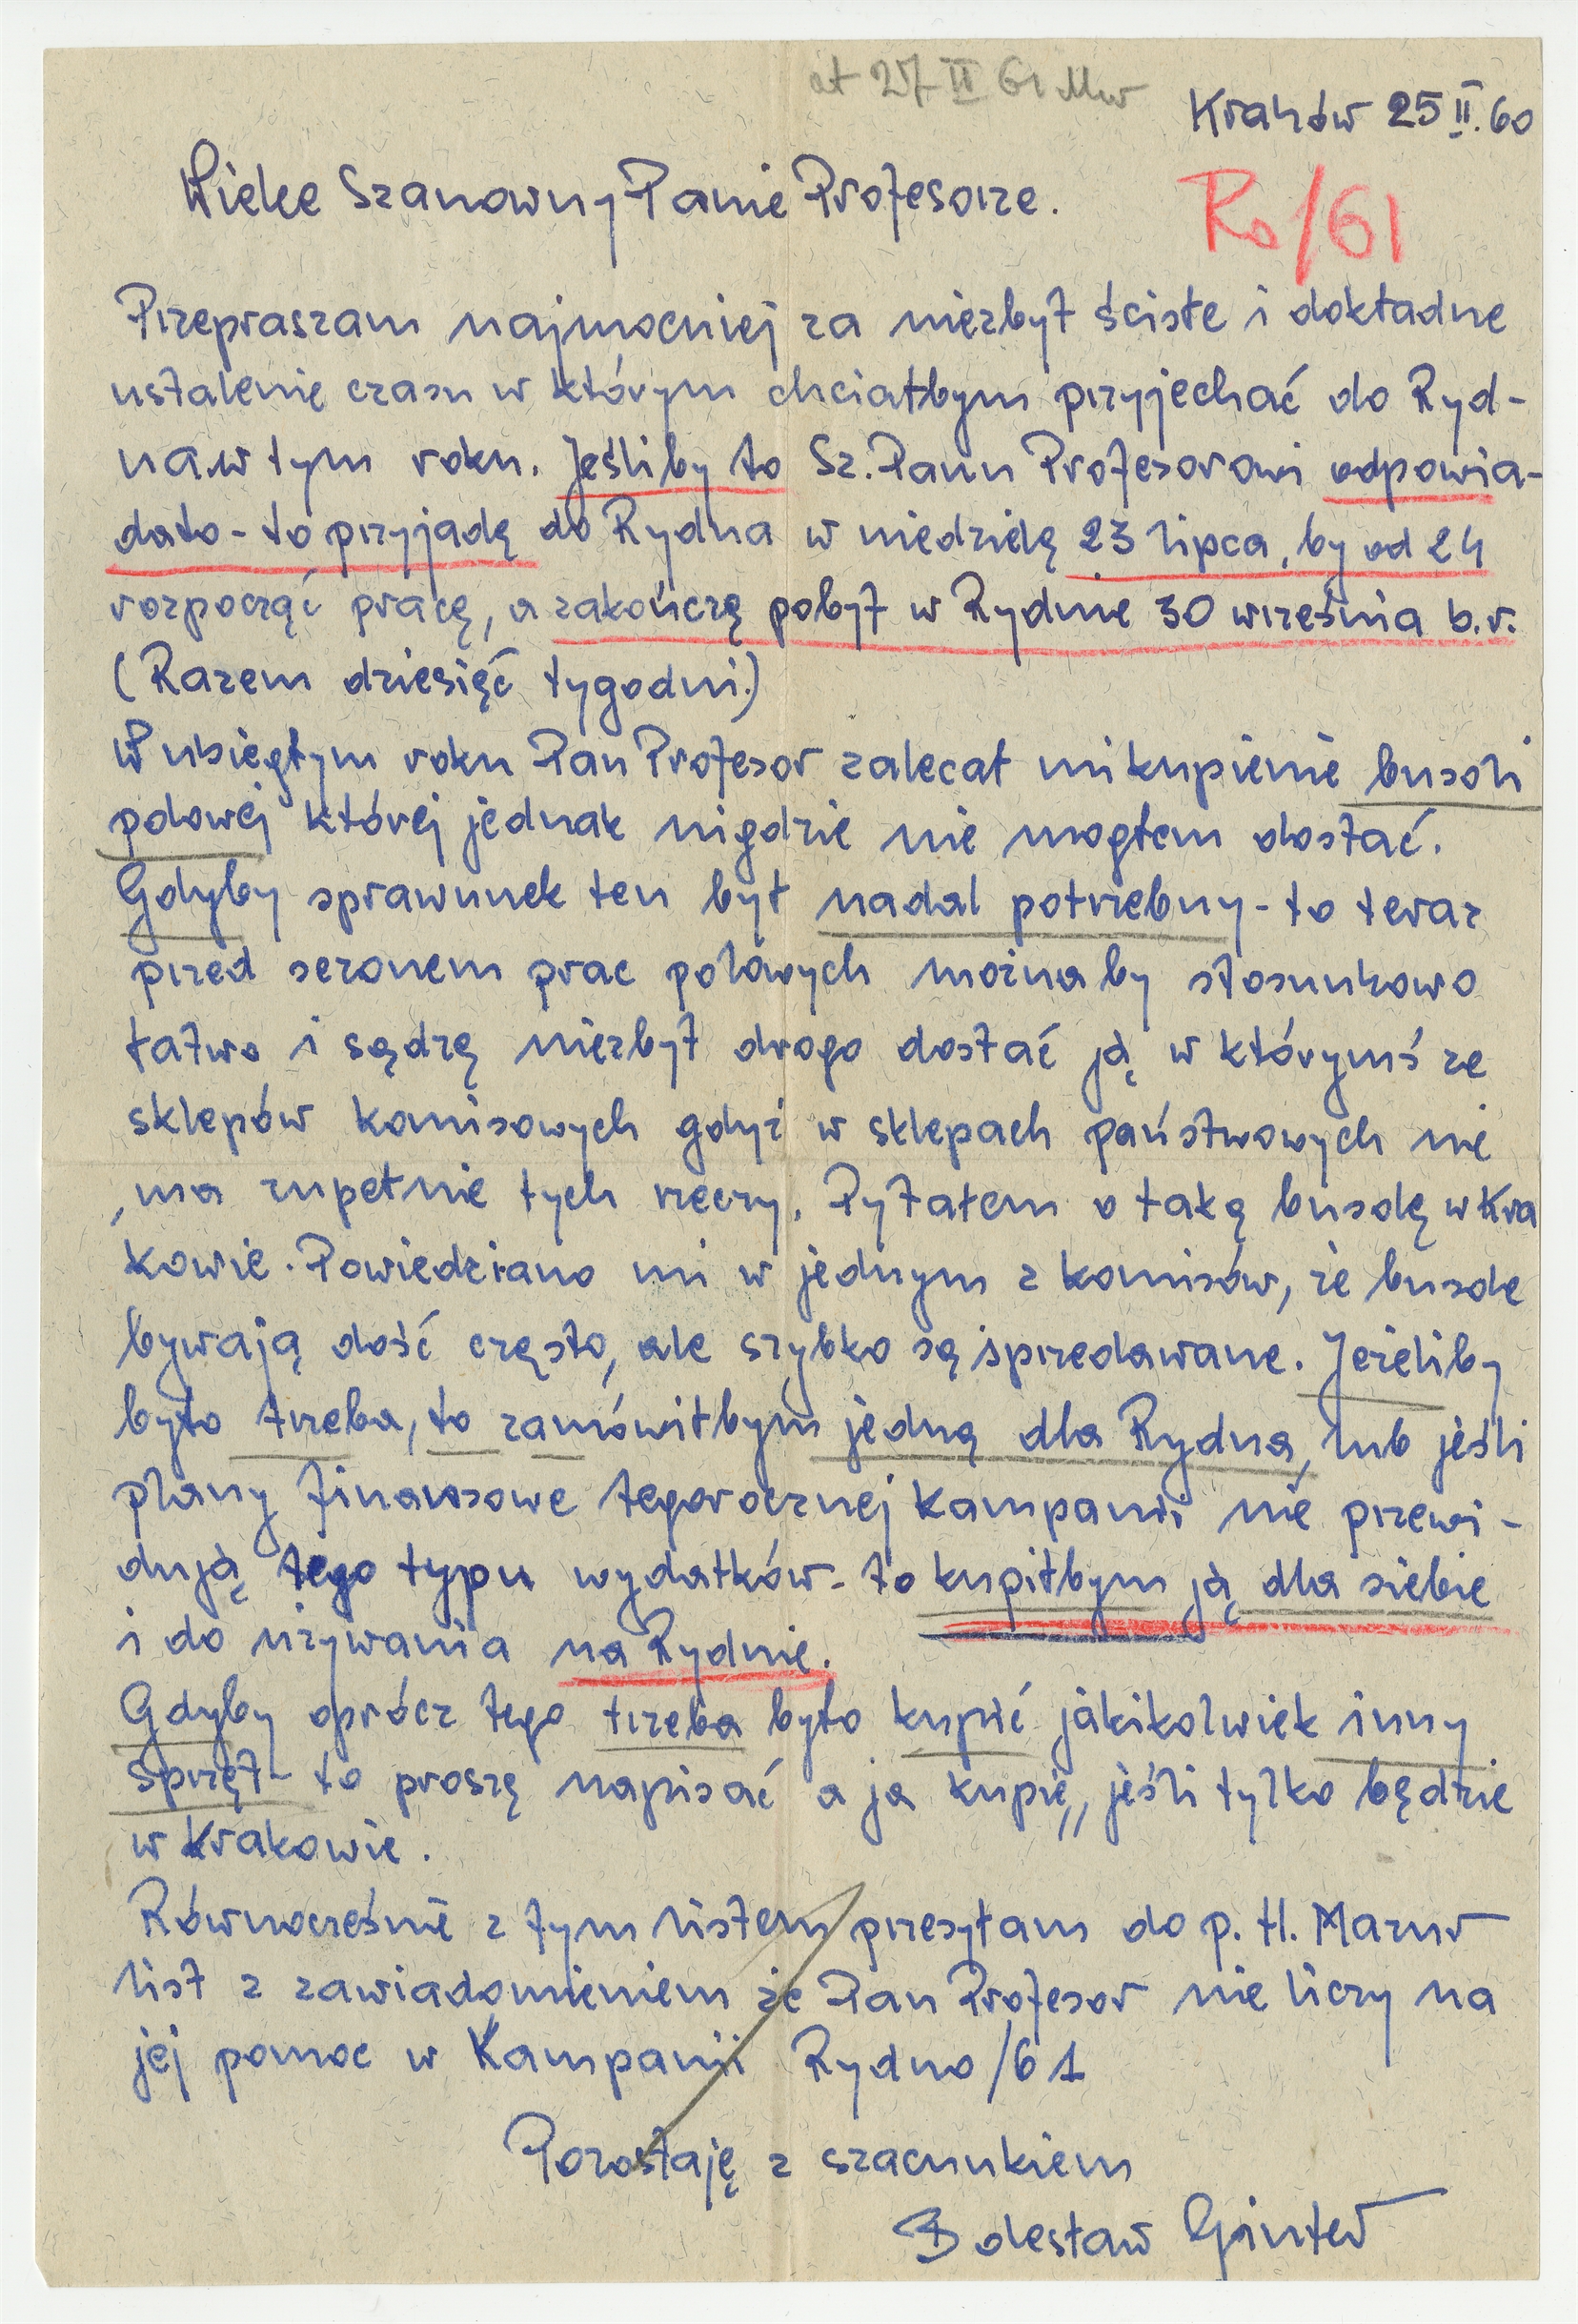 at 27 II 61 Mw
Kraków 25 II. 60
Wielce Szanowny Panie Profesorze.
Ro/61
Przepraszam najmocniej za niezbyt ścisłe i dokładne
ustalenie czasu w którym chciałbym przyjechać do Ryd-
na w tym roku. Jeśliby to Sz. Panu Profesorowi odpowia-
dało - to przyjadę do Rydna w niedzielę 23 lipca, by od 24
rozpocząć pracę, a zakończę pobyt w Rydnie 30 września b.r.
(Razem dziesięć tygodni.)
W ubiegłym roku Pan Profesor zalecał mi kupienie busoli
polowej której jednak nigdzie nie mogłem dostać.
Gdyby sprawunek ten był nadal potrzebny - to teraz
przed sezonem prac polowych możnaby stosunkowo
łatwo i sądzę niezbyt drogo dostać ją w którymś ze
sklepów komisowych gdyż w sklepach państwowych nie
ma zupełnie tych rzeczy. Pytałem o taką busolę w Kra
kowie. Powiedziano mi w jednym z komisów, że busole
bywają dość często, ale szybko są sprzedawane. Jeżeliby
było trzeba, to zamówiłbym jedną dla Rydna, lub jeśli
plany finansowe tegorocznej kampanii nie przewi-
dują tego typu wydatków - to kupiłbym ją dla siebie
i do używania na Rydnie.
Gdyby oprócz tego trzeba było kupić jakikolwiek inny
sprzęt - to proszę napisać a ja kupię,, jeśli tylko będzie
w Krakowie.
Równocześnie z tym listem przesyłam do p. H. Mazur
list z zawiadomieniem że Pan Profesor nie liczy na
jej pomoc w Kampanii Rydno/61
Pozostaję z szacunkiem
Bolesław Ginter